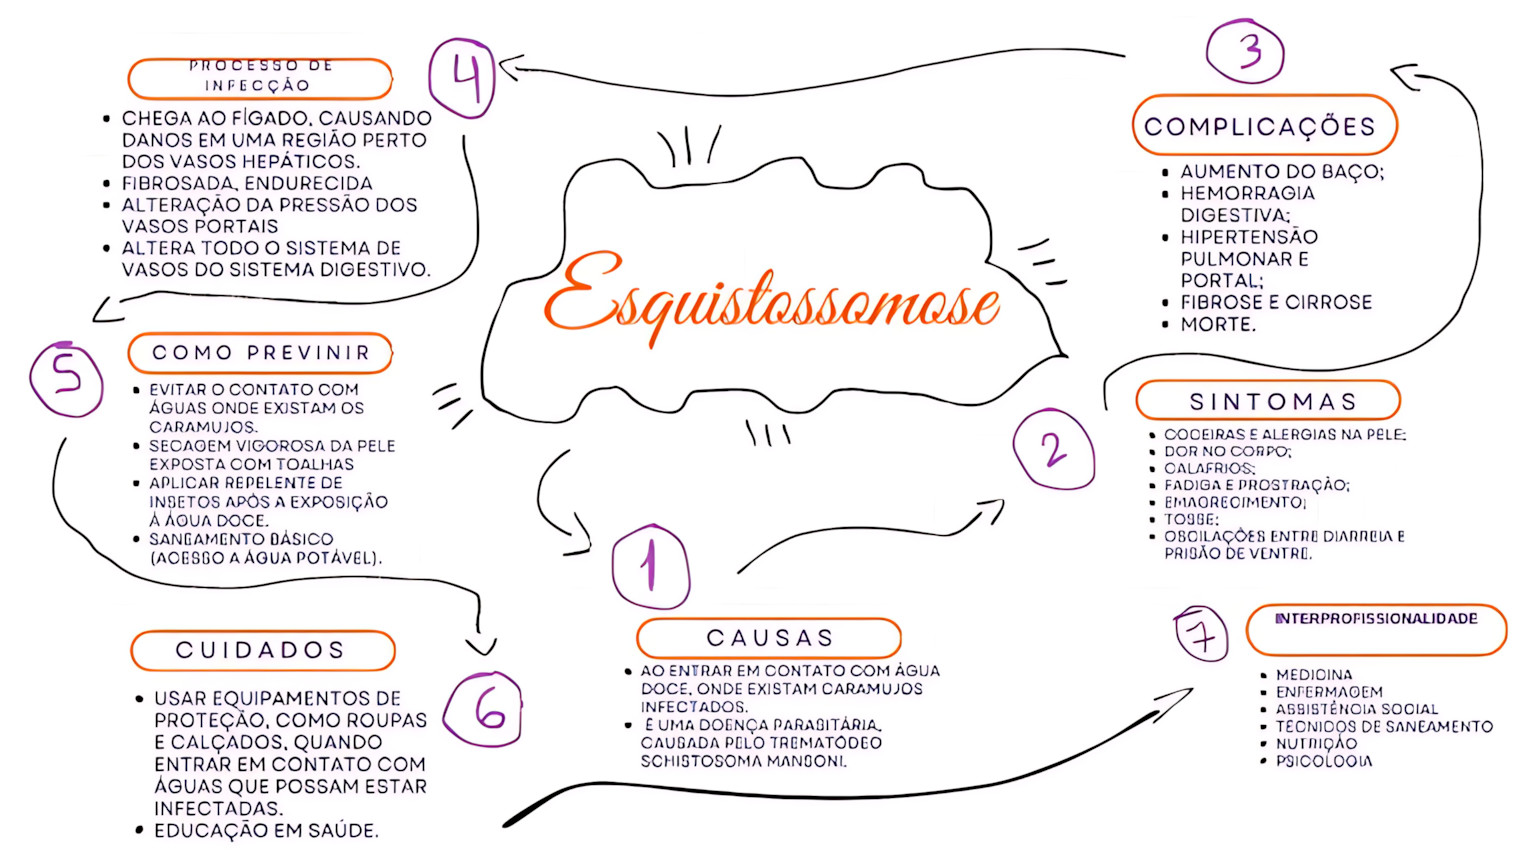 Esquistossomose
1
CAUSAS
AO ENTRAR EM CONTATO COM ÁGUA
DOCE, ONDE EXISTAM CARAMUJOS
INFECTADOS.
É UMA DOENÇA PARASITÁRIA,
CAUSADA PELO TREMATÓDEO
SCHISTOSOMA MANSONI.
2
SINTOMAS
COCEIRAS E ALERGIAS NA PELE;
DOR NO CORPO;
CALAFRIOS;
FADIGA E PROSTRAÇÃO;
EMAGRECIMENTO;
TOSSE;
OSCILAÇÕES ENTRE DIARREIA E
PRISÃO DE VENTRE.
3
COMPLICAÇÕES
AUMENTO DO BAÇO;
HEMORRAGIA
DIGESTIVA;
HIPERTENSÃO
PULMONAR E
PORTAL;
FIBROSE E CIRROSE
MORTE.
4
PROCESSO DE
INFECÇÃO
CHEGA AO FÍGADO, CAUSANDO
DANOS EM UMA REGIÃO PERTO
DOS VASOS HEPÁTICOS.
FIBROSADA, ENDURECIDA
ALTERAÇÃO DA PRESSÃO DOS
VASOS PORTAIS
ALTERA TODO O SISTEMA DE
VASOS DO SISTEMA DIGESTIVO.
5
COMO PREVINIR
EVITAR O CONTATO COM
ÁGUAS ONDE EXISTAM OS
CARAMUJOS.
SECAGEM VIGOROSA DA PELE
EXPOSTA COM TOALHAS
APLICAR REPELENTE DE
INSETOS APÓS A EXPOSIÇÃO
À ÁGUA DOCE.
SANEAMENTO BÁSICO
(ACESSO A ÁGUA POTÁVEL).
6
CUIDADOS
USAR EQUIPAMENTOS DE
PROTEÇÃO, COMO ROUPAS
E CALÇADOS, QUANDO
ENTRAR EM CONTATO COM
ÁGUAS QUE POSSAM ESTAR
INFECTADAS.
EDUCAÇÃO EM SAÚDE.
7
INTERPROFISSIONALIDADE
MEDICINA
ENFERMAGEM
ASSISTÊNCIA SOCIAL
TÉCNICOS DE SANEAMENTO
NUTRIÇÃO
PSICOLOGIA